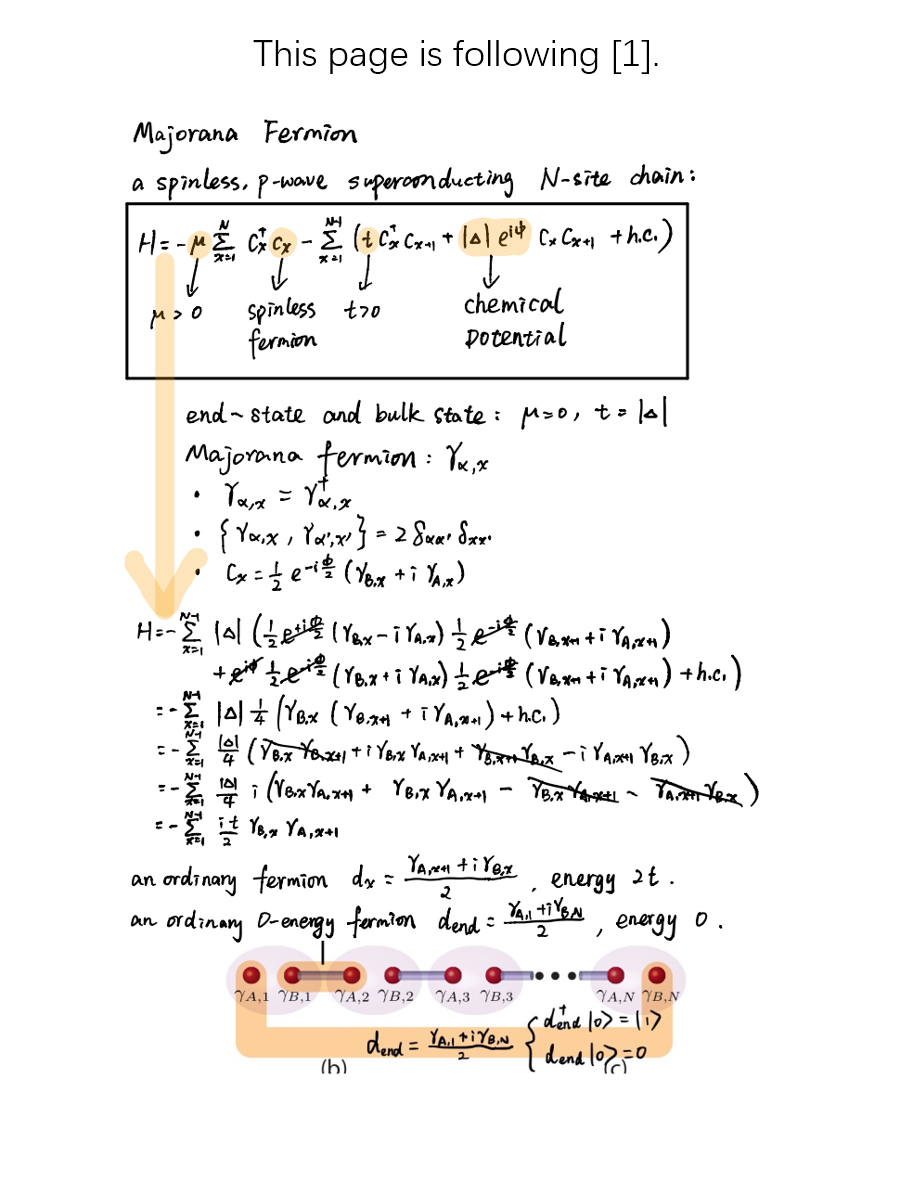 This page is following [1].
Majorana Fermion
a spinless, p-wave superconducting N-site chain:
H = -μ ∑_{x=1}^{N} c_x^† c_x - ∑_{x=1}^{N-1} (t c_x^† c_{x+1} + |Δ| e^{iϕ} c_x c_{x+1} + h.c.)
μ > 0 spinless fermion t>0 chemical potential
end-state and bulk state: μ=0, t = |Δ|
Majorana fermion: γ_{α,x}
• γ_{α,x} = γ_{α,x}^†
• {γ_{α,x}, γ_{α',x'}} = 2 δ_{αα'} δ_{xx'}
• c_x = 1/2 e^{-iϕ/2} (γ_{B,x} + i γ_{A,x})
H = -∑_{x=1}^{N-1} |Δ| (1/2 e^{+iϕ/2} (γ_{B,x} - i γ_{A,x}) 1/2 e^{-iϕ/2} (γ_{B,x+1} + i γ_{A,x+1})
+ e^{iϕ} 1/2 e^{-iϕ/2} (γ_{B,x} + i γ_{A,x}) 1/2 e^{-iϕ/2} (γ_{B,x+1} + i γ_{A,x+1}) + h.c.)
= -∑_{x=1}^{N-1} |Δ| 1/4 (γ_{B,x} (γ_{B,x+1} + i γ_{A,x+1}) + h.c.)
= -∑_{x=1}^{N-1} |Δ|/4 (γ_{B,x} γ_{B,x+1} + i γ_{B,x} γ_{A,x+1} + γ_{B,x+1} γ_{B,x} - i γ_{A,x+1} γ_{B,x})
= -∑_{x=1}^{N-1} |Δ|/4 i (γ_{B,x} γ_{A,x+1} + γ_{B,x} γ_{A,x+1} - γ_{B,x} γ_{A,x+1} - γ_{A,x+1} γ_{B,x})
= -∑_{x=1}^{N-1} it/2 γ_{B,x} γ_{A,x+1}
an ordinary fermion d_x = (γ_{A,x+1} + i γ_{B,x})/2, energy 2t.
an ordinary 0-energy fermion d_end = (γ_{A,1} + i γ_{B,N})/2, energy 0.
γ_{A,1} γ_{B,1} γ_{A,2} γ_{B,2} γ_{A,3} γ_{B,3} γ_{A,N} γ_{B,N}
d_end = (γ_{A,1} + i γ_{B,N})/2 { d_end^† |0> = |1>
d_end |0> = 0
(b) (c)